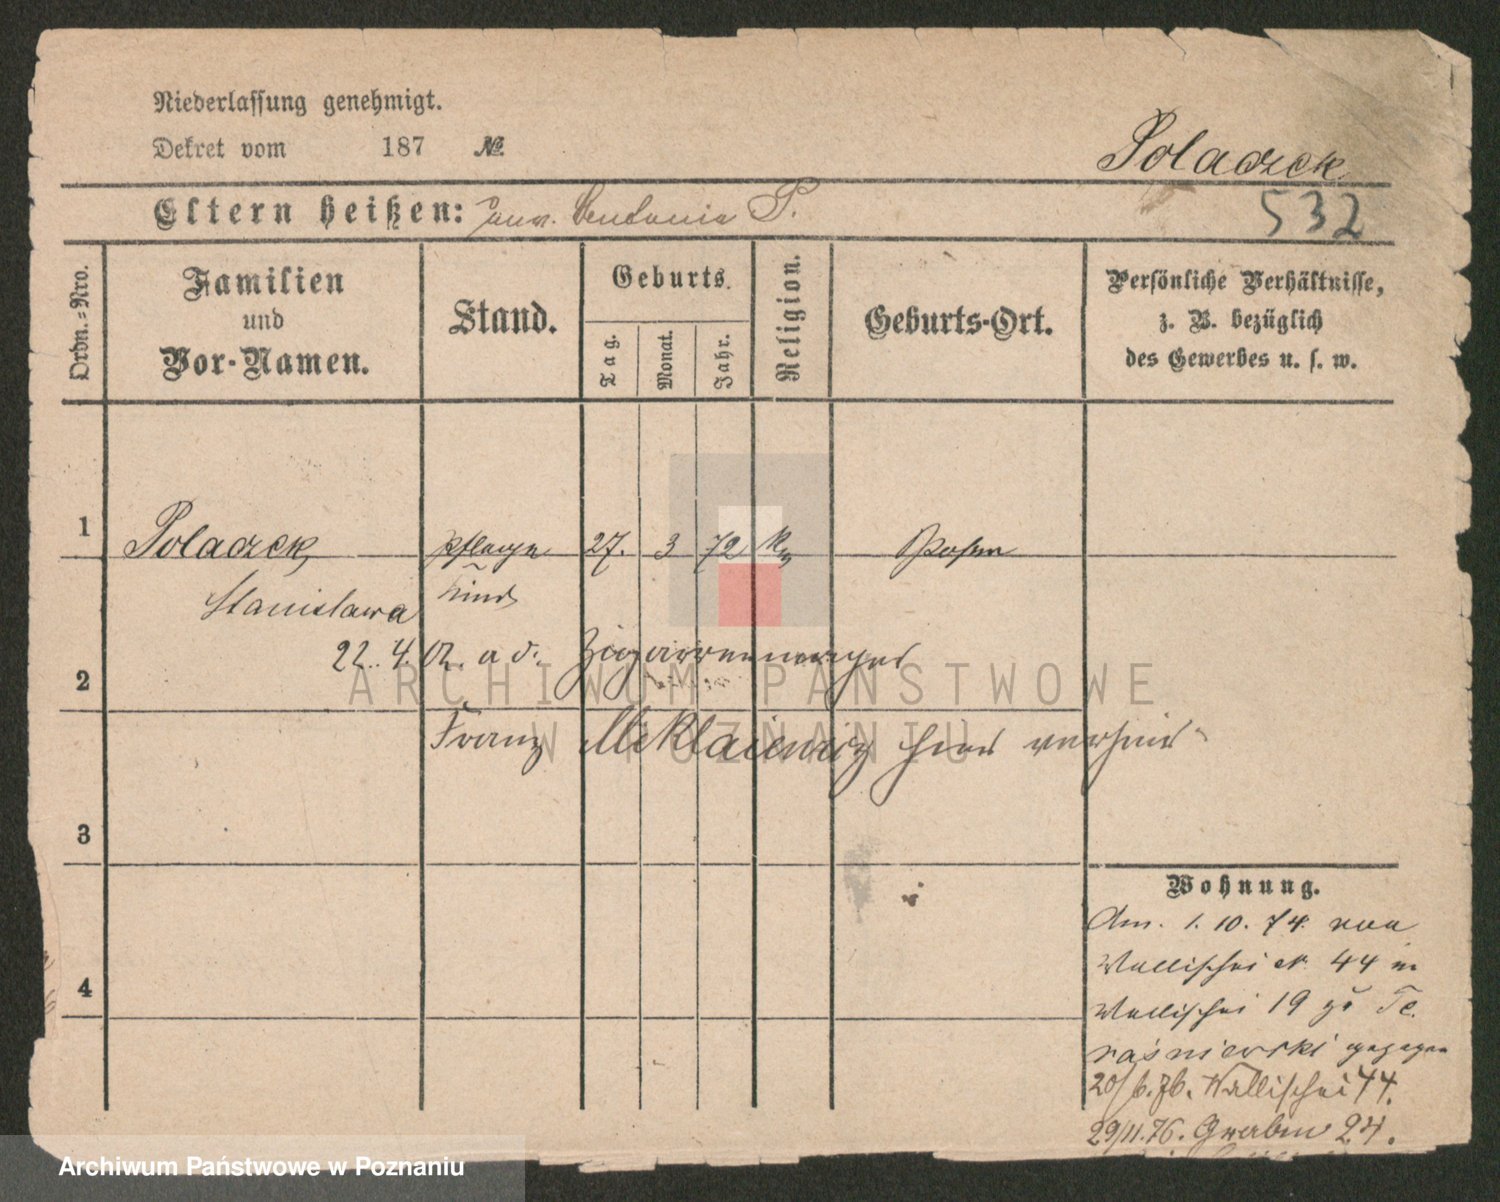 Niederlassung genehmigt.
Dekret vom 187 №
Polaczek
Eltern heißen: unv. Antonia P.
532
Ordn.-Nro.
Familien
und
Vor-Namen.
Stand.
Geburts.
Tag.
Monat.
Jahr.
Religion.
Geburts-Ort.
Persönliche Verhältnisse,
z. B. bezüglich
des Gewerbes u. s. w.
1 Polaczek, Pflege 27. 3 72 k. Posen
Stanislawa kind
22. 4. a. d. Zigarrenmacher
2
Franz hier verheir
3
Wohnung.
Am. 1. 10. 74. von
Wallischei N. 44 n
4
Wallischei 19 zu Te.
raśniewski gezogen
20/6. 76. Wallischei 44.
29/11.76. Graben 24.
ARCHIWUM PAŃSTWOWE
W POZNANIU
Archiwum Państwowe w Poznaniu